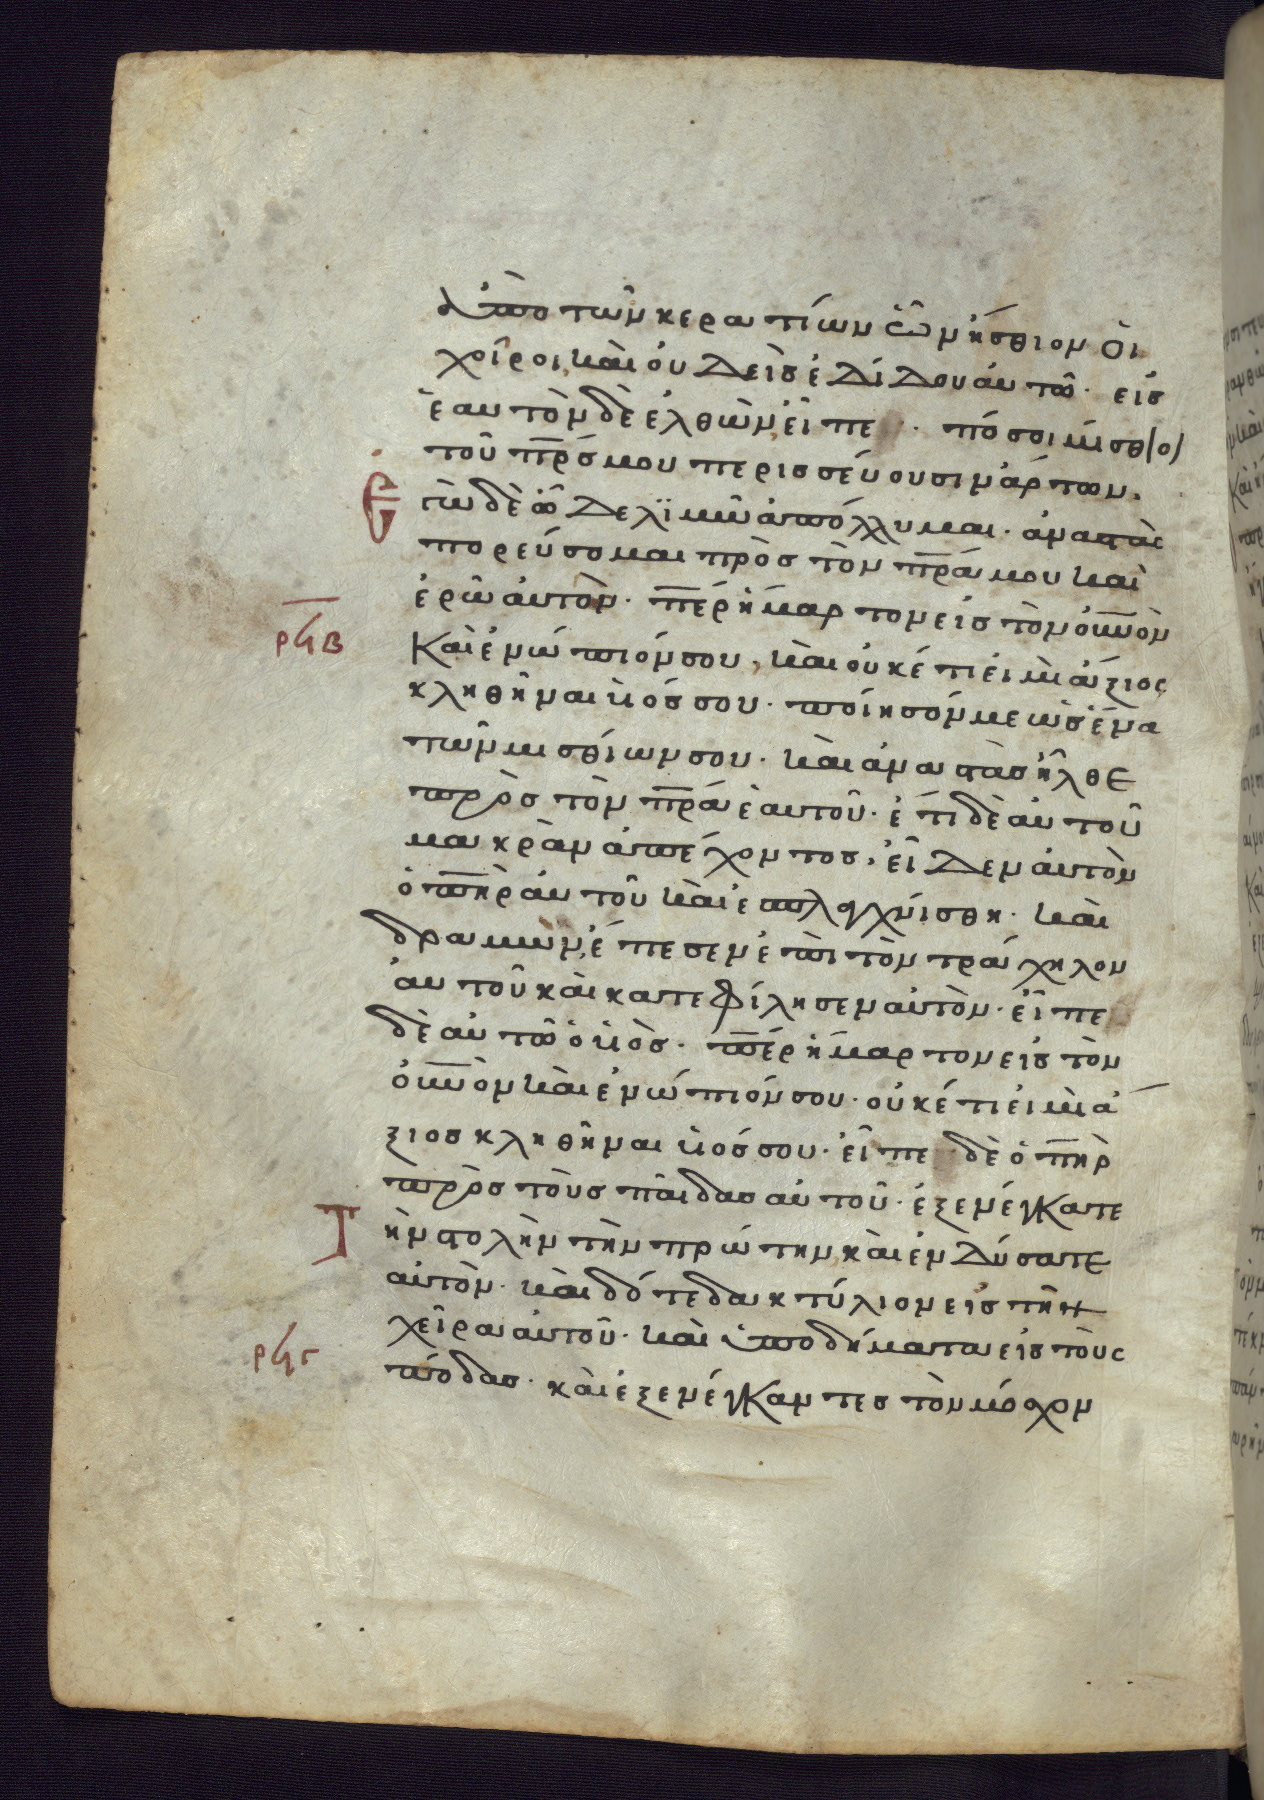 ἀπὸ τῶν κερατίων ὧν ἤσθιον οἱ
χοῖροι καὶ οὐδεὶς ἐδίδου αὐτῶ· εἰς
ἑαυτὸν δὲ ἐλθὼν εἶπε · πόσοι μίσθ(ο)ι
τοῦ πρ̅ς μου περισσεύουσιν ἄρτων.
Ἐγὼ δὲ ὧδε λϊμῶ ἀπόλλυμαι· ἀναστὰς
πορεύσομαι πρὸς τὸν πρ̅α μου καὶ
ἐρῶ αὐτὸν· πε̅ρ ἥμαρτον εἰς τὸν οὐν̅ὸν
ρϟβ
καὶ ἐνώπιόν σου, καὶ οὐκέτι εἰμὶ ἄξιος
κληθῆναι υἱός σου· ποίησόν με ὡς ἕνα
τῶν μισθίων σου· καὶ ἀναστὰς ἦλθε
πρὸς τὸν πρ̅α ἑαυτοῦ· ἔτι δὲ αὐτοῦ
μακρὰν ἀπέχοντος, εἶδεν αὐτὸν
ὁ πη̅ρ αὐτοῦ καὶ ἐσπλαγχνίσθη· καὶ
δραμὼν, ἔπεσεν ἐπὶ τὸν τράχηλον
αὐτοῦ καὶ κατεφίλησεν αὐτὸν· εἶπε
δὲ αὐτῶ ὁ υἱὸς· πε̅ρ ἥμαρτον εἰς τὸν
οὐν̅ὸν καὶ ἐνώπιόν σου· οὐκέτι εἰμὶ ἄ
ξιος κληθῆναι υἱός σου· εἶπε δὲ ὁ πη̅ρ
πρὸς τοὺς παῖδας αὐτοῦ· ἐξενέγκατε
Τὴν στολὴν τὴν πρώτην καὶ ἐνδύσατε
αὐτὸν· καὶ δότε δακτύλιον εἰς τὴν
χεῖρα αὐτοῦ· καὶ ὑποδήματα εἰς τοὺς
ρϟγ
πόδας· καὶ ἐξενέγκαντες τὸν μόσχον